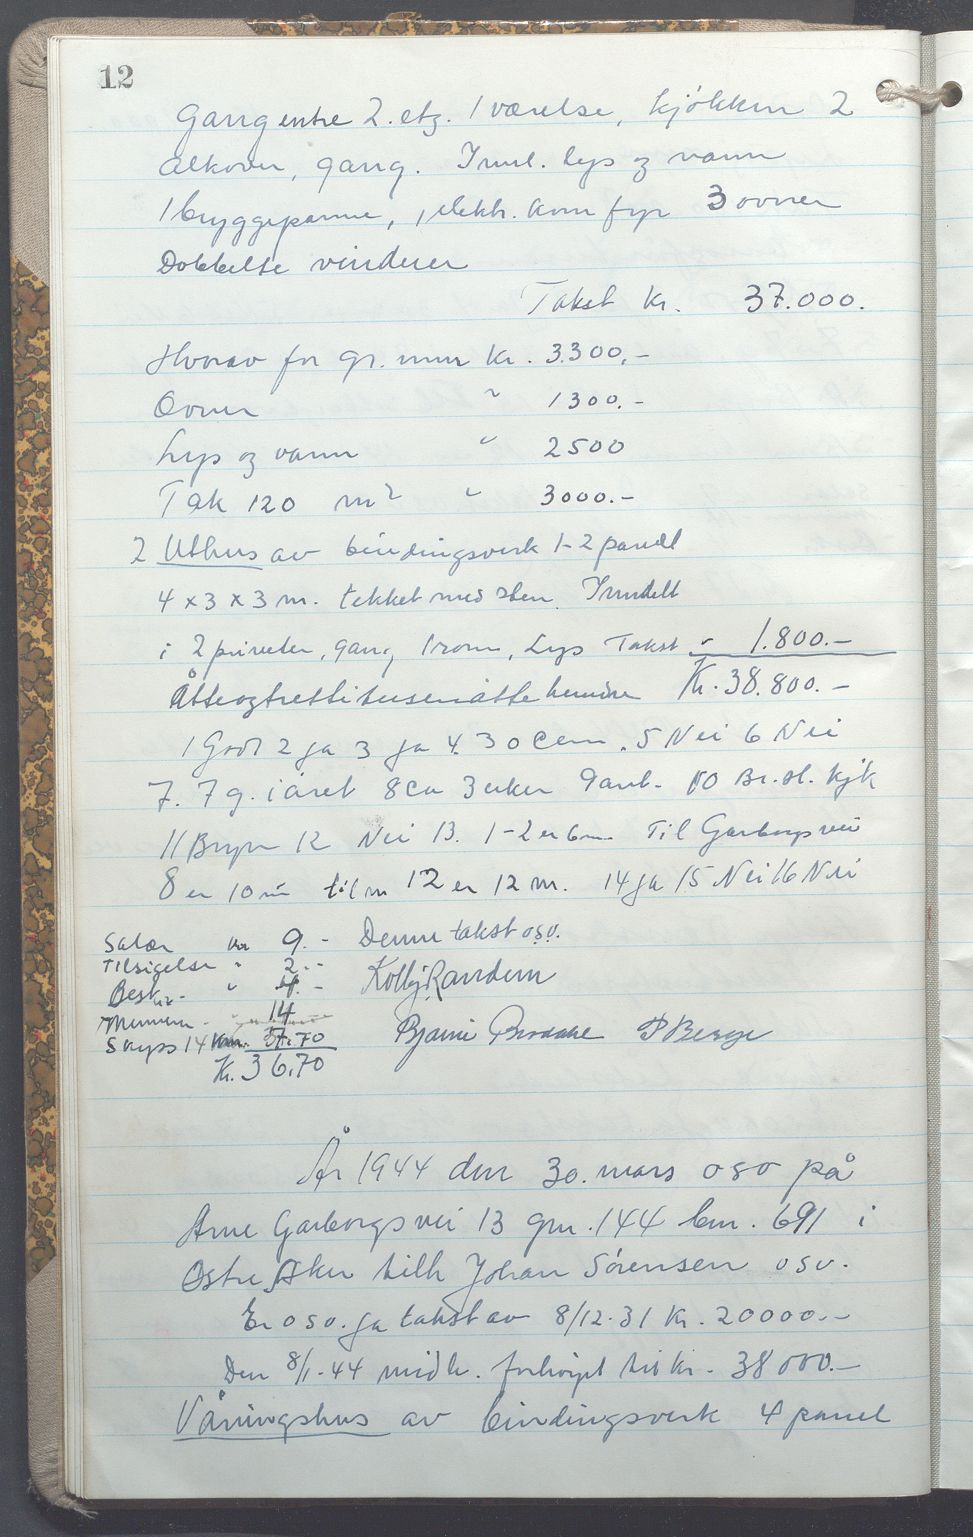 12
Gang entre 2. etg. 1 værelse, kjökken 2
alkover, gang. Innl. lys og vann
1 bryggepanne, 1 elektr. kom fyr 3 ovner
Dobbelte vinduer
Takst Kr. 37.000.
Hvorav for gr. mur Kr. 3.300,-
Ovner " 1300.-
Lys og vann " 2500
Tak 120 m2 " 3000.-
2 Uthus av bindingsverk 1-2 panel
4 x 3 x 3 m. tekket med sten. Inndelt
i 2 priveter, gang 1 rom, Lys Takst " 1.800.-
Åtteogtrettitusenåttehundre Kr. 38.800.-
1 God 2 ja 3 ja 4. 30 cem. 5 Nei 6 Nei
7. 7 g. i året 8 ca 3 uker 9 ant. 10 Br. st. kjk
11 Bryn 12 Nei 13. 1-2 er 6 m Til Garborgs vei
8 er 10 m til m 12 er 12 m. 14 ja 15 Nei 16 Nei
Salær Kr 9.- Denne takst osv.
Tilsigelse " 2.-
Best " 4.- Kolbj. Randem
14
Skyss 14 Km. 37.70 Bjarne P. Berge
Kr. 36,70
År 1944 den 30. mars oso på
Arne Garborgs vei 13 gnr. 144 bnr. 691 i
Östre Aker tilh Johan Sörensen osv.
Er oso. ja takst av 8/12.31 Kr. 20000.-
Den 8/1-44 midl. forhöyet til kr. 38000.-
Våningshus av bindingsverk 4 panel